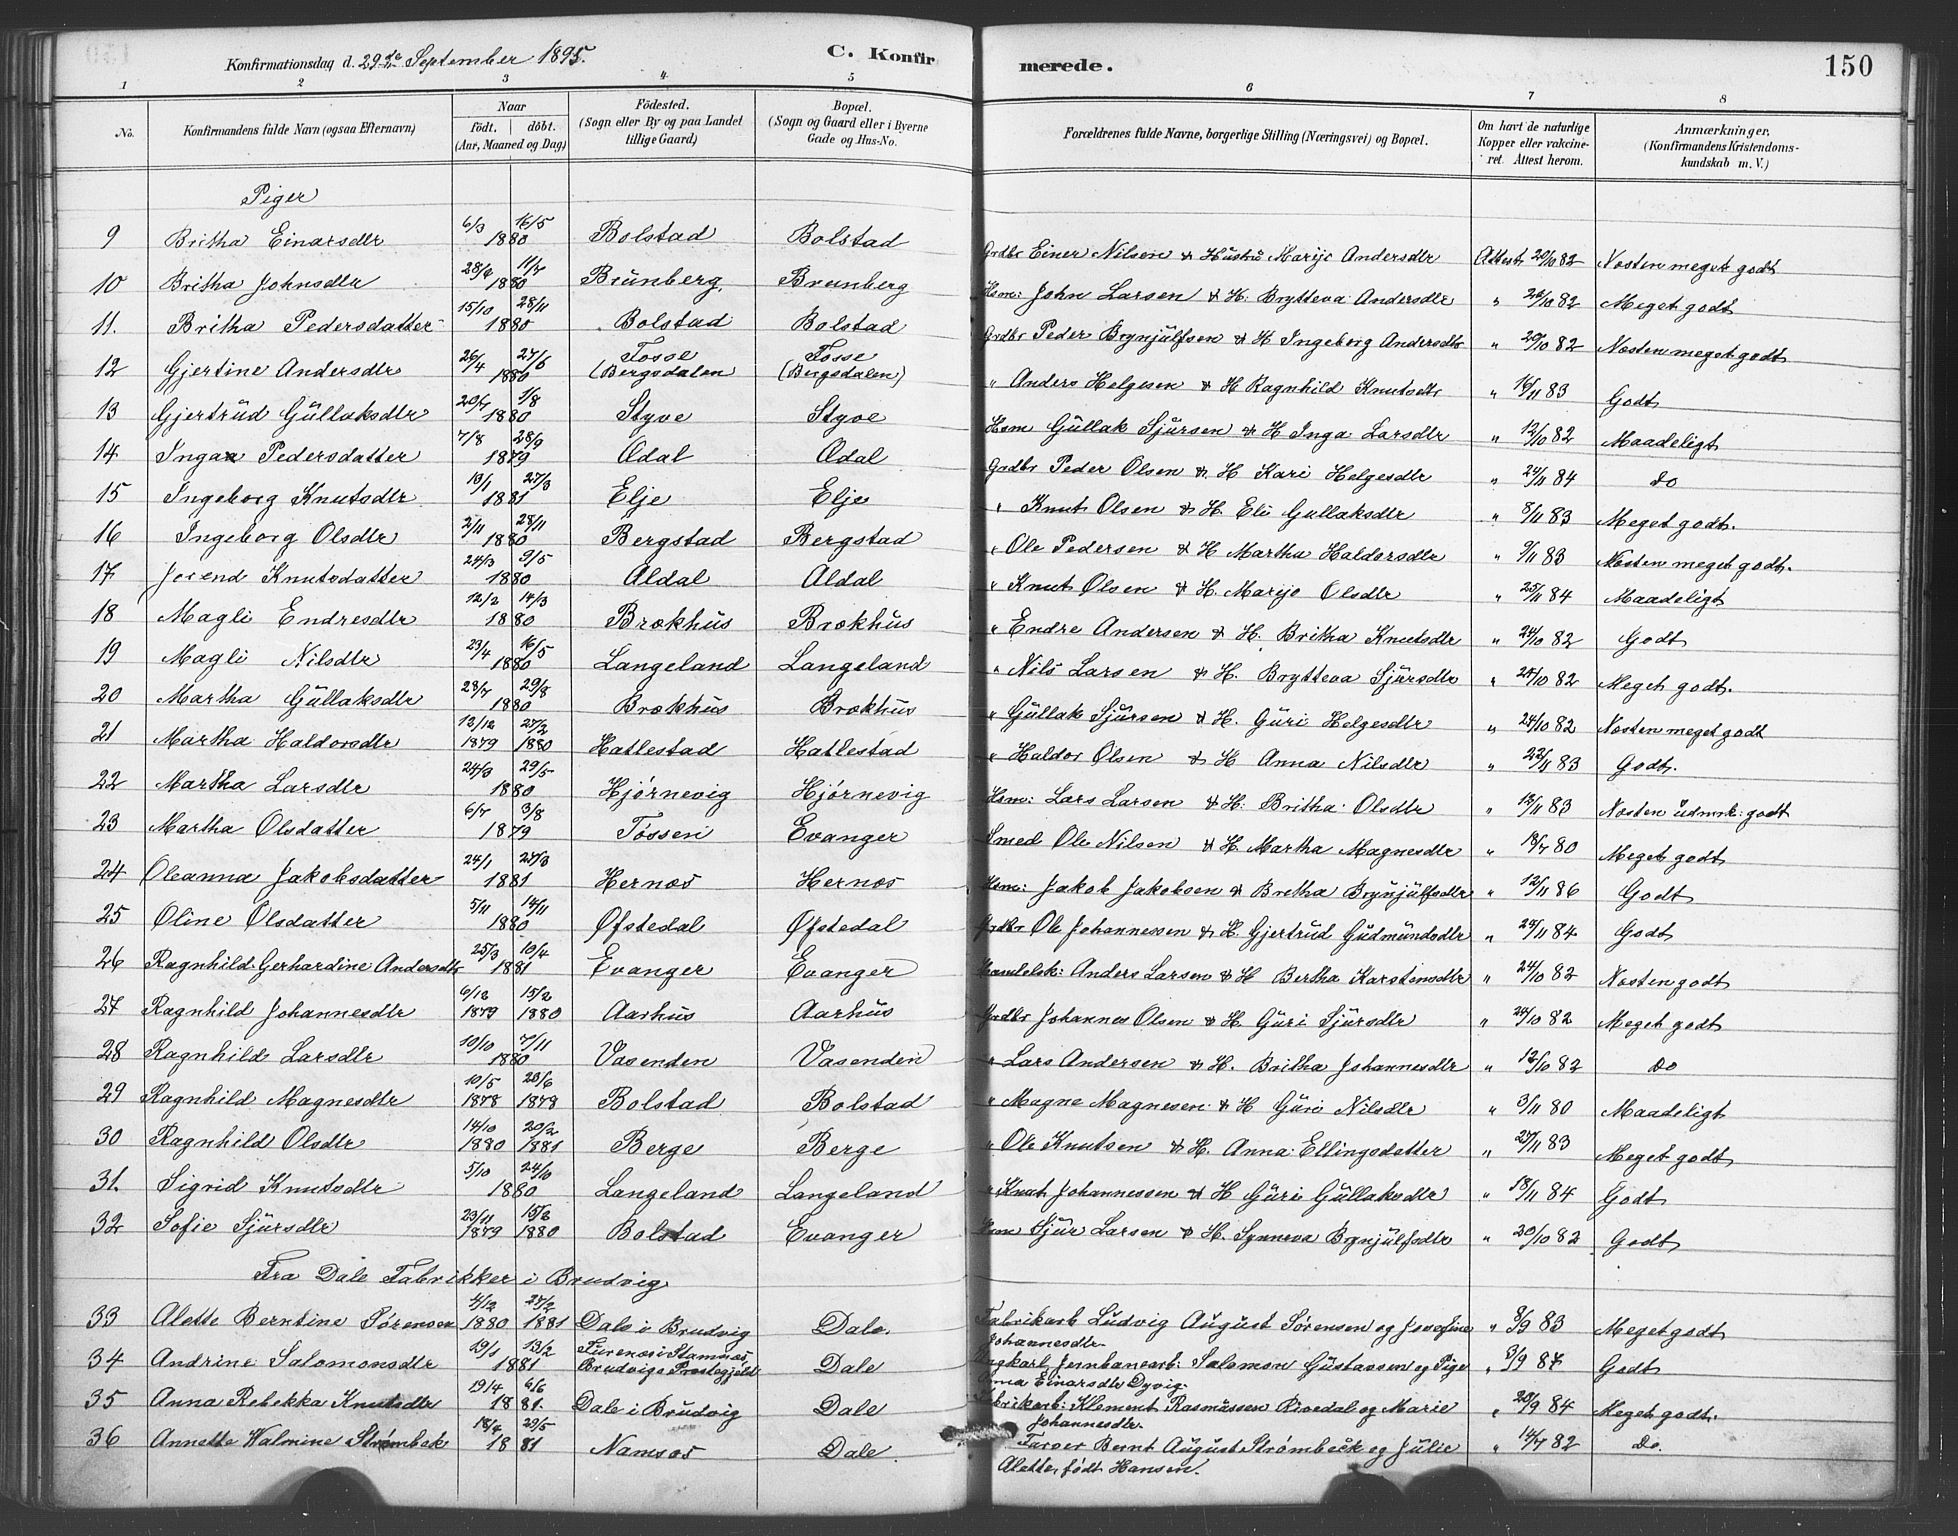 Konfirmationsdag d. 29de September 1895.
C. Konfirmerede.
150
1 2 3 4 5 6 7 8
No.
Konfirmandens fulde Navn (ogsaa Efternavn)
Naar
født. | døbt.
(Aar, Maaned og Dag)
Fødested.
(Sogn eller By og paa Landet
tillige Gaard)
Bopæl.
(Sogn og Gaard eller i Byerne
Gade og Hus-No.
Forældrenes fulde Navne, borgerlige Stilling (Næringsvei) og Bopæl.
Om havt de naturlige
Kopper eller vakcine-
ret. Attest herom.
Anmærkninger,
(Konfirmandens Kristendoms-
kundskab m. V.)
Piger
9 Britha Einarsdtr 6/3 16/5 1880 Bolstad Bolstad Grdbr Einer Nilsen & Hustru Marije Andersdtr Attest 20/10 82 Næsten meget godt
10 Britha Johnsdtr 28/4 11/7 1880 Brunberg Brunberg Hsm: John Larsen & H. Brytteva Andersdtr " 26/10 82 Meget godt
11. Britha Pedersdatter 15/10 28/11 1880 Bolstad Bolstad Grdbr Peder Brynjülfsen & H Ingeborg Andersdtr " 20/10 82 Næsten meget godt
12 Gjertine Andersdtr 26/4 27/6 1880 Fosse (Bergsdalen) Fosse (Bergsdalen) " Anders Helgesen & H Ragnhild Knutsdtr " 16/11 83 Godt
13 Gjertrüd Güllaksdtr 20/7 1/8 1880 Styve Styve Hsm Güllak Sjursen & H Inga Larsdtr " 12/10 82 Maadeligt
14 Inga Pedersdatter 7/8 28/9 1879 Ødal Ødal Grdbr Peder Olsen & H Kari Helgesdtr " 24/11 84 do
15 Ingeborg Knutsdtr 19/1 27/3 1881 Elje Elje " Knut Olsen & H. Eli Gullaksdtr " 8/11 83 Meget godt.
16 Ingeborg Olsdtr 2/11 28/11 1880 Bergstad Bergstad " Ole Pedersen & H Martha Haldorsdtr " 9/11 83 Næsten meget godt.
17 Jorend Knutsdatter 24/3 9/5 1880 Aldal Aldal " Knut Olsen & H. Marijo Olsdtr " 25/11 84 Maadeligt
18 Magli Endresdtr 12/2 14/3 1880 Brækhüs Brækhüs " Endre Andersen & H. Britha Knutsdtr " 24/10 82 Godt
19 Magli Nilsdtr 23/4 16/5 1880 Langeland Langeland " Nils Larsen & H. Brytteva Sjürsdtr " 24/10 82 Meget godt.
20 Martha Güllaksdtr 23/7 29/8 1880 Brækhüs Brækhüs " Güllak Sjürsen & H. Güri Helgesdtr " 24/10 82 Næsten meget godt
21 Martha Haldorsdtr 12/12 1879 27/2 1880 Hatlestad Hatlestad " Haldor Olsen & H Anna Nilsdtr " 22/11 83 Godt.
22 Martha Larsdtr 24/3 29/5 1880 Hjørnevig Hjørnevig Hsm: Lars Larsen & H. Britha Olsdtr " 13/11 83 Næsten üdmrk: godt
23 Martha Olsdatter 6/7 3/8 1879 Tøssen Evanger Smed Ole Nilsen & H. Martha Magnesdtr " 13/7 80 Meget godt
24 Oleanna Jakobsdatter 24/1 27/3 1881 Hernæs Hernæs Hsm: Jakob Jakobsen & Bretha Brynjülfsdtr " 12/11 86 Godt
25 Oline Olsdatter 5/11 14/11 1880 Øfstedal Øfstedal Grdbr Ole Johannessen & H. Gjertrüd Güdmündsdtr " 24/11 84 Godt
26 Ragnhild Gerhardine Andersdtr 25/3 10/4 1881 Evanger Evanger Handelsk: Anders Larsen & H Bertha Karstensdtr " 24/10 82 Næsten godt
27 Ragnhild Johannesdtr 6/12 1879 15/2 1880 Aarhüs Aarhüs Grdbr Johannes Olsen & H. Güri Sjürsdtr " 24/10 82 Meget godt
28 Ragnhild Larsdtr 10/10 7/11 1880 Vasenden Vasenden " Lars Andersen & H. Britha Johannesdtr " 12/10 82 Do
29 Ragnhild Magnesdtr 10/5 1878 20/6 1878 Bolstad Bolstad " Magne Magnesen & H Güro Nilsdtr " 3/11 80 Maadeligt
30 Ragnhild Olsdtr 14/10 1880 20/2 1881 Berge Berge " Ole Knutsen & H. Anna Ellingsdatter " 27/11 83 Meget godt
31. Sigrid Knutsdtr 5/10 24/10 1880 Langeland Langeland " Knut Johannessen & H Güri Güllaksdtr " 18/11 84 Godt
32 Sofie Sjürsdtr 23/11 1879 15/2 1880 Bolstad Evanger Hsm Sjür Larsen & H. Synneva Brynjülfsdtr " 20/10 82 Godt
Fra Dale Fabrikker i Brudvig
33 Alette Berntine Sørensen 4/12 1880 27/2 1881 Dale i Brudvig Dale. Fabrikarb Ludvig August Sørensen og Josefine Johannesdtr " 8/9 83 Meget godt
34 Andrine Salomonsdtr 19/1 13/2 1881 Furenæs i Stamnæs Brudvigs Prestegjeld Dale Ungkarl Jernbanearb: Salomon Güstavsen og Pige Anna Einarsdtr Dyvig. " 8/9 87 Godt
35 Anna Rebekka Knutsdtr 19/4 6/6 1881. Dale i Brudvig Dale Fabrikarb: Klement Rasmüssen Risedal og Marie Johannesdtr. " 22/9 84 Meget godt.
36 Annette Walmine Strømbek 18/4 29/5 1881 Namsos Dale. Farver Bernt August Strømbeck og Jülie Alette, født Hansen. " 14/7 82 Do.